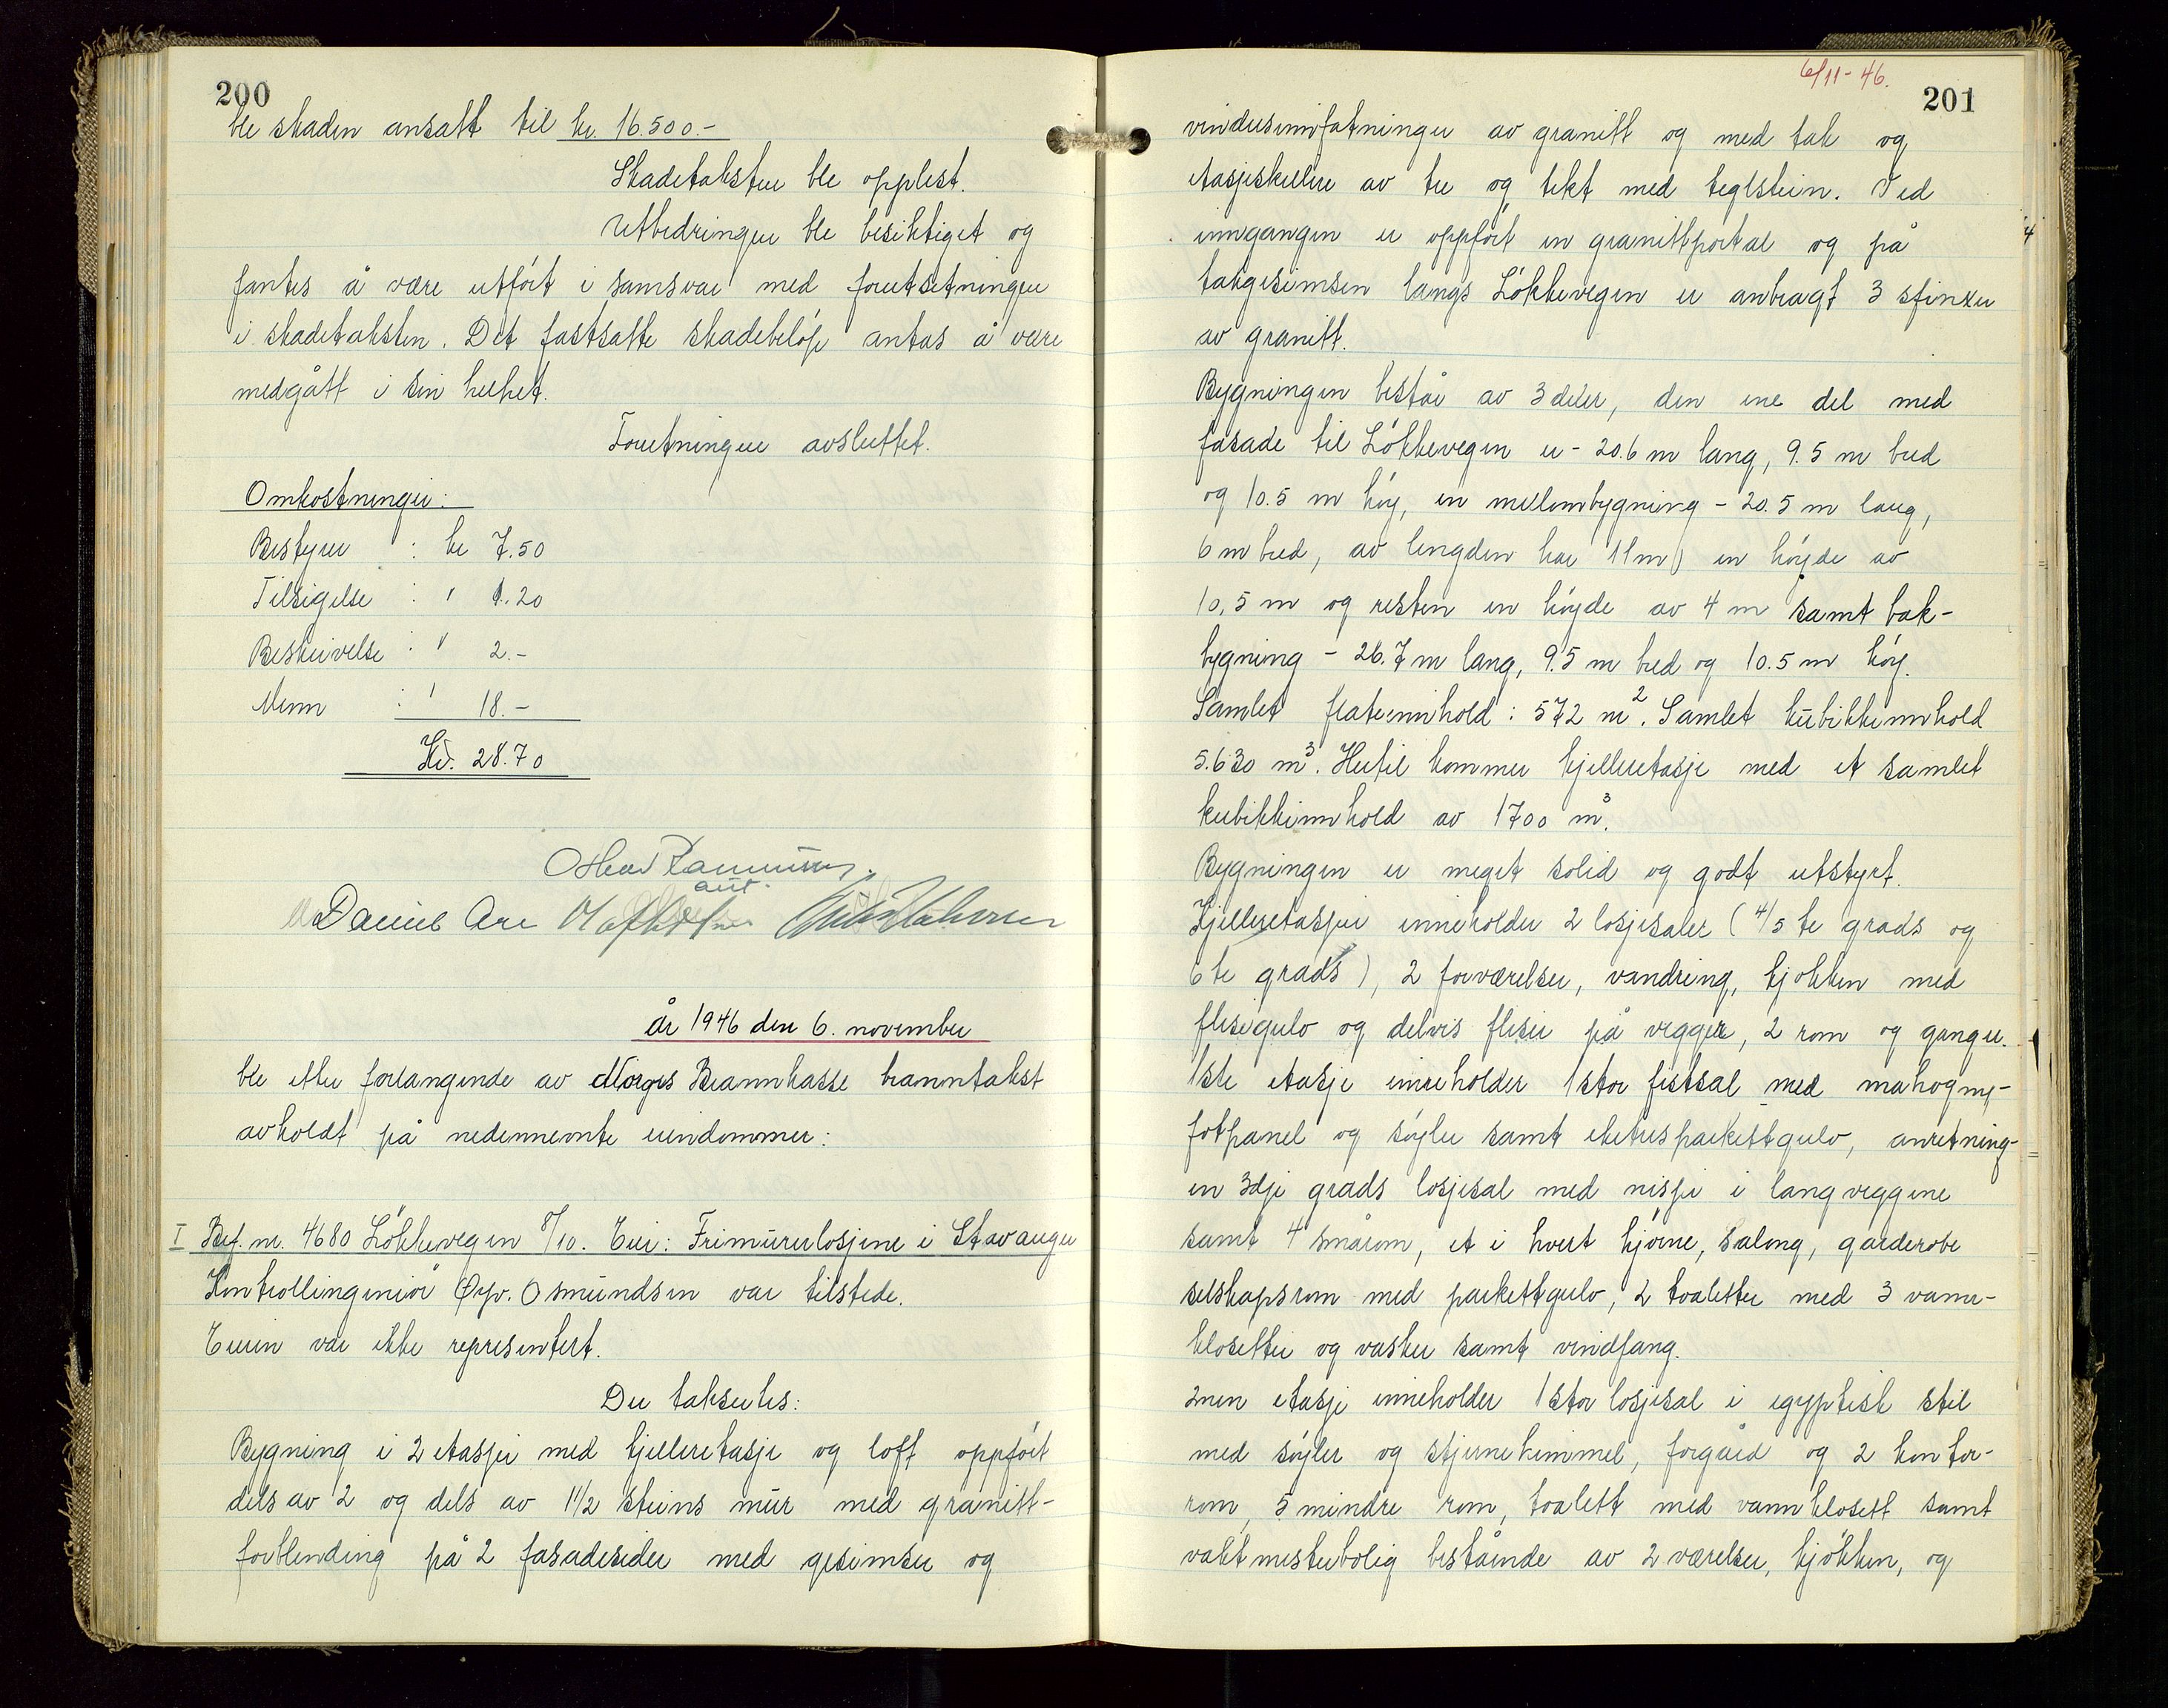 200
ble skaden ansatt til kr. 16.500.-
Skadetaksten ble opplest.
Utbedringen ble besiktiget og
fantes å være utført i samsvar med forutsetningene
i skadetaksten. Det fastsatte skadebeløp antas å være
medgått i sin helhet.
Forretningen avsluttet.
Omkostninger:
Bestyrer : kr 7.50
Tilsigelse : " 1.20
Beskrivelse : " 2.-
Menn : " 18.-
Kr. 28.70
ass.
Daniel Are
år 1946 den 6. november
ble etter forlangende av Norges Brannkasse branntakst
avholdt på nedennevnte eiendommer:
I Bef. nr. 4680 Løkkevegen 8/10. Eier: Frimurerlosjene i Stavanger
Kontrollingeniør Ørjv. Osmundsen var tilstede.
Eieren var ikke representert.
Der takseres:
Bygning i 2 etasjer med kjelleretasje og loft oppført
dels av 2 og dels av 1 1/2 steins mur med granitt-
forblending på 2 fasadesider med gesimser og
6/11-46.
201
vindusinnfatninger av granitt og med tak og
etasjeskillere av tre og tekt med teglstein. Ved
inngangen er oppført en granittportal og på
takgesimsen langs Løkkevegen er anbragt 3 sfinxer
av granitt.
Bygningen består av 3 deler, den ene del med
fasade til Løkkevegen er - 20.6 m lang, 9.5 m bred
og 10.5 m høy, en mellombygning - 20.5 m lang,
6 m bred, av lengden har 11m) en høyde av
10,5 m og resten en høyde av 4 m samt bak-
bygning - 26.7 m lang, 9.5 m bred og 10.5 m høy.
Samlet flateinnhold: 572 m². Samlet kubikkinnhold
5.630 m³. Hertil kommer kjelleretasje med et samlet
kubikkinnhold av 1700 m³.
Bygningen er meget solid og godt utstyrt.
Kjelleretasjen inneholder 2 losjesaler (4/5 te grads og
6te grads), 2 forværelser, vandring, kjøkken med
flisegulv og delvis fliser på vegger, 2 rom og ganger.
1ste etasje inneholder 1 stor festsal med mahogny-
fotpanel og søyler samt eketresparkettgulv, anretning-
en 3dje grads losjesal med nisjer i langveggene
samt 4 smårom, et i hvert hjørne, salong, garderobe
selskapsrom med parkettgulv, 2 toaletter med 3 vann-
klosetter og vasker samt vindfang.
2nen etasje inneholder 1 stor losjesal i egyptisk stil
med søyler og stjernehimmel, forgård og 2 kontor-
rom, 5 mindre rom, toalett med vannklosett samt
vaktmesterbolig bestående av 2 værelser, kjøkken, og